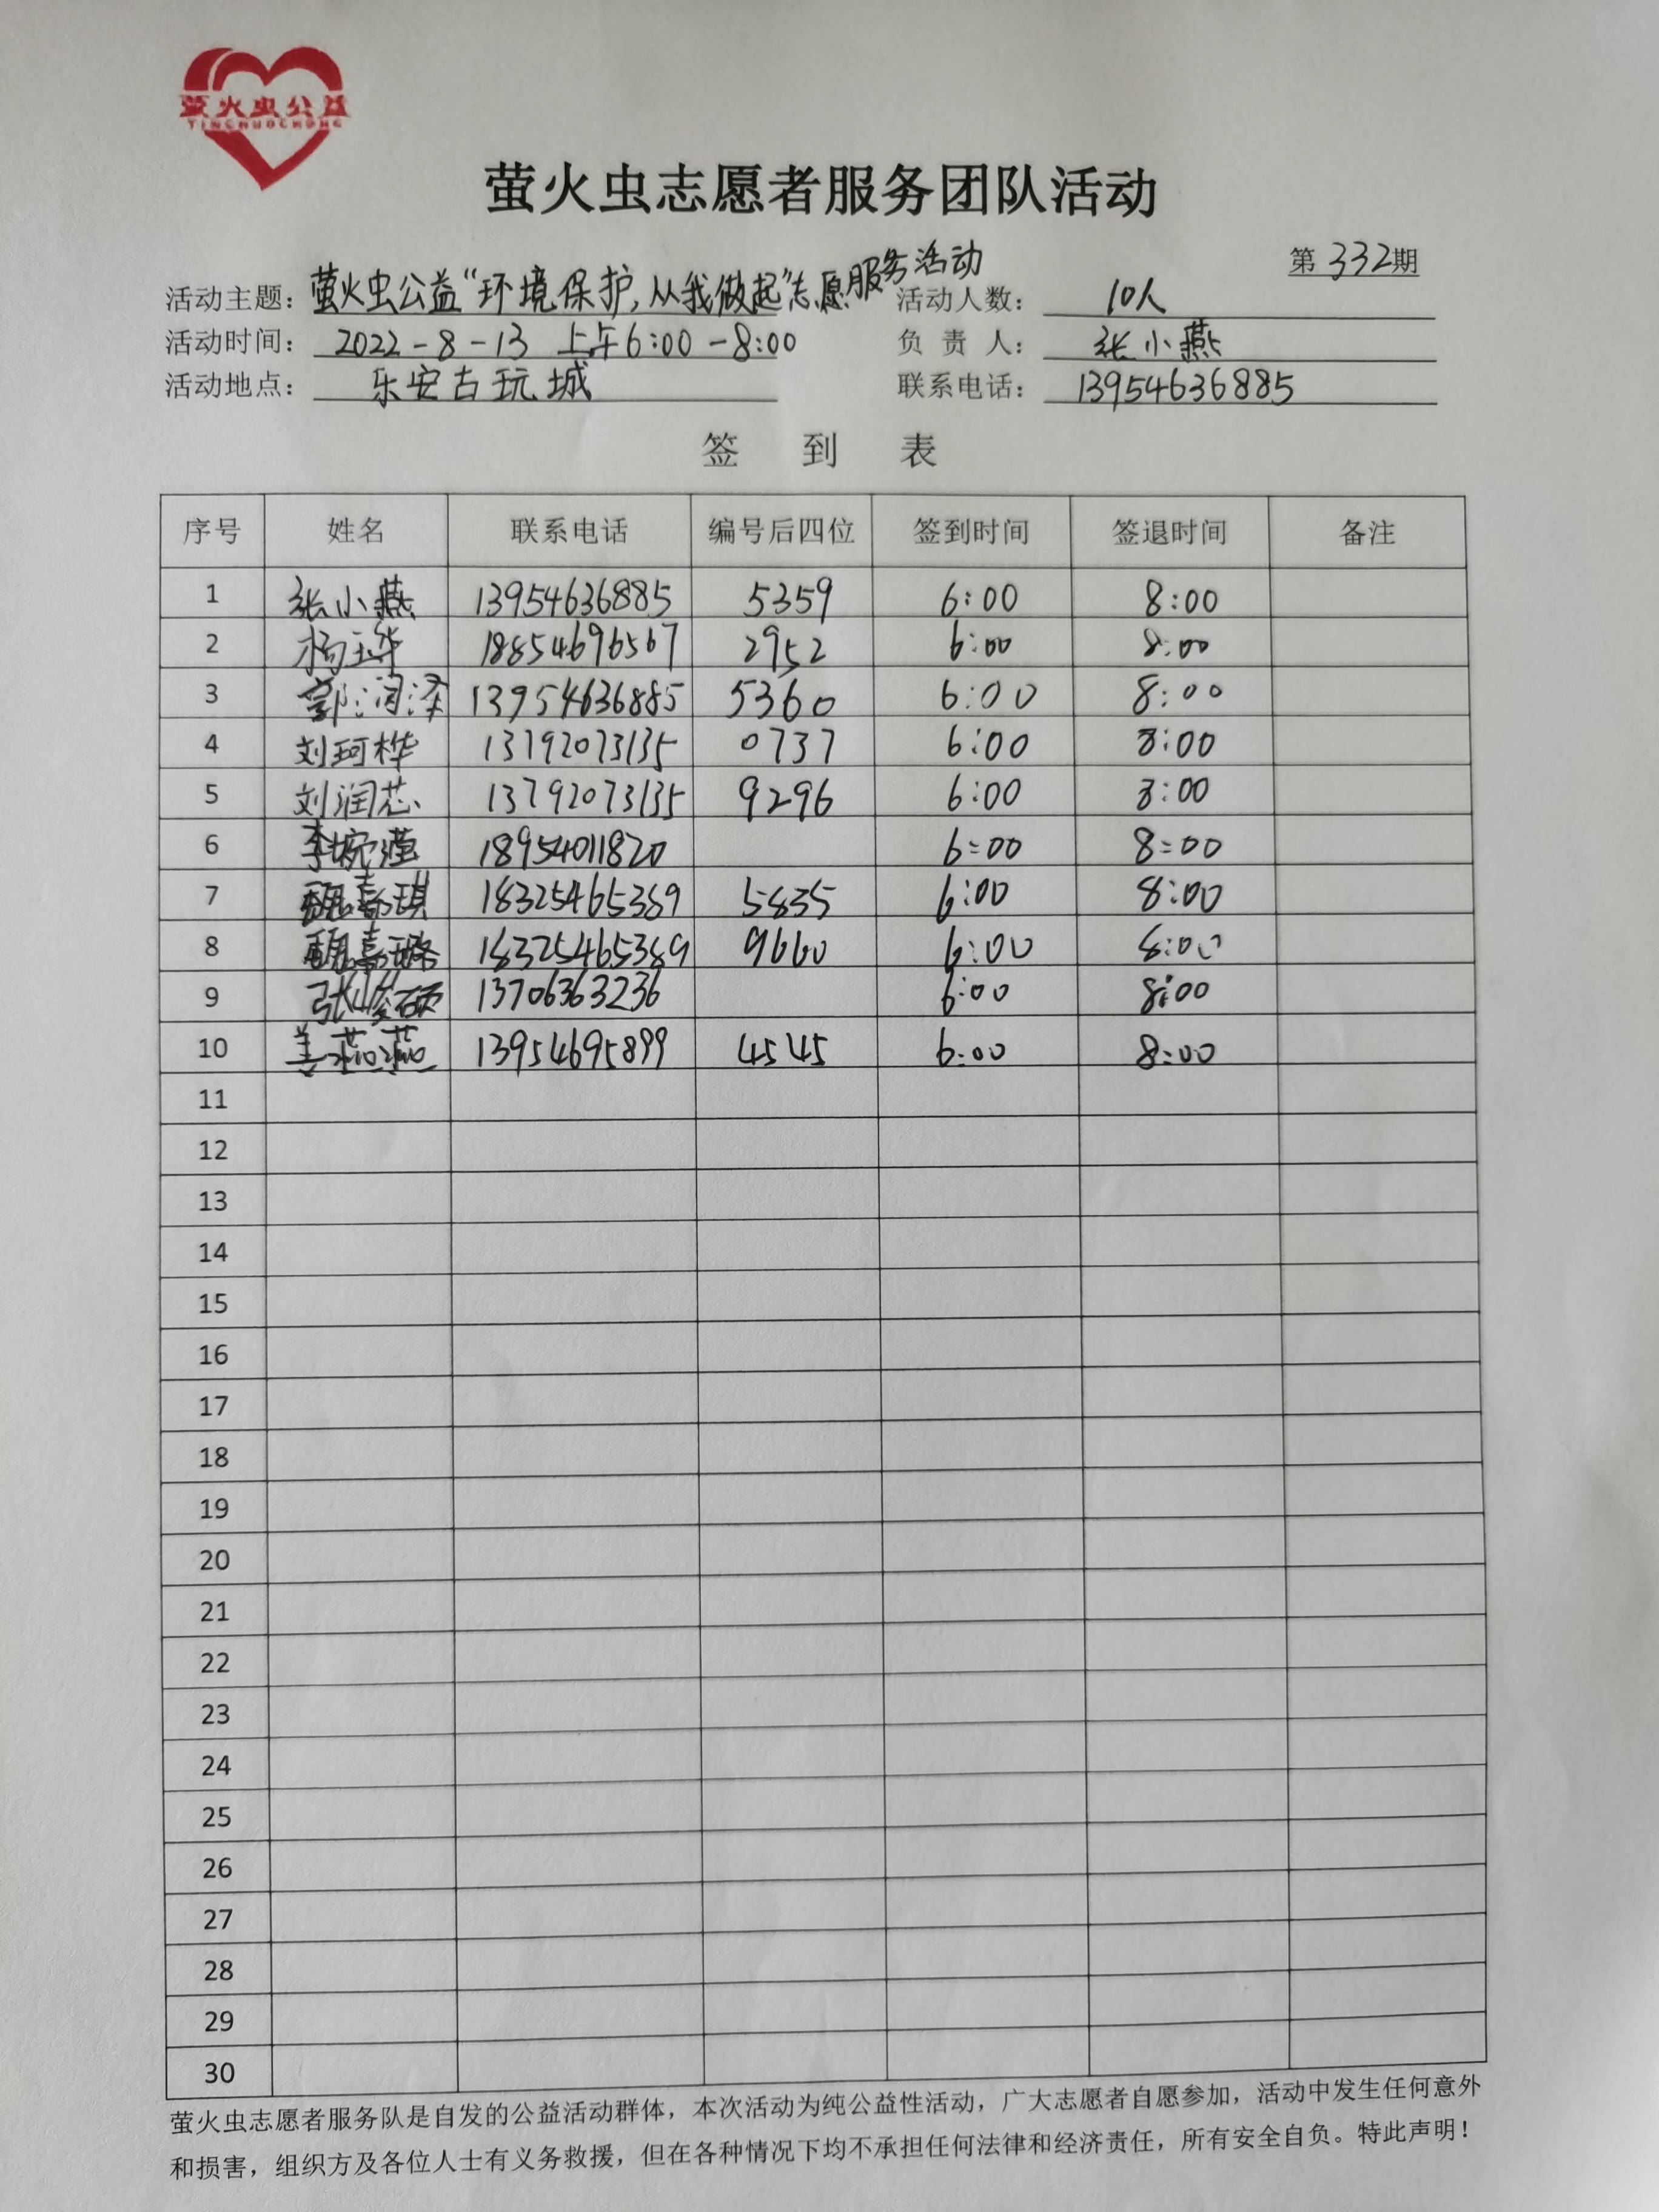 萤火虫公益
YINGHUOCHONG
萤火虫志愿者服务团队活动
第332期
活动主题：萤火虫公益“环境保护,从我做起”志愿服务活动 活动人数：10人
活动时间：2022-8-13 上午6:00-8:00 负责人：张小燕
活动地点：乐安古玩城 联系电话：13954636885
签到表
序号 姓名 联系电话 编号后四位 签到时间 签退时间 备注
1 张小燕 13954636885 5359 6:00 8:00
2 杨玉华 18854696567 2952 6:00 8:00
3 郭润泽 13954636885 5360 6:00 8:00
4 刘珂桦 13792073135 0737 6:00 8:00
5 刘润芯 13792073135 9296 6:00 8:00
6 李婉滢 18954011820 6:00 8:00
7 魏嘉琪 18325465389 5835 6:00 8:00
8 魏嘉璐 18325465389 9660 6:00 8:00
9 张峻硕 13706363236 6:00 8:00
10 姜 13954695899 4545 6:00 8:00
11
12
13
14
15
16
17
18
19
20
21
22
23
24
25
26
27
28
29
30
萤火虫志愿者服务队是自发的公益活动群体，本次活动为纯公益性活动，广大志愿者自愿参加，活动中发生任何意外
和损害，组织方及各位人士有义务救援，但在各种情况下均不承担任何法律和经济责任，所有安全自负。特此声明！